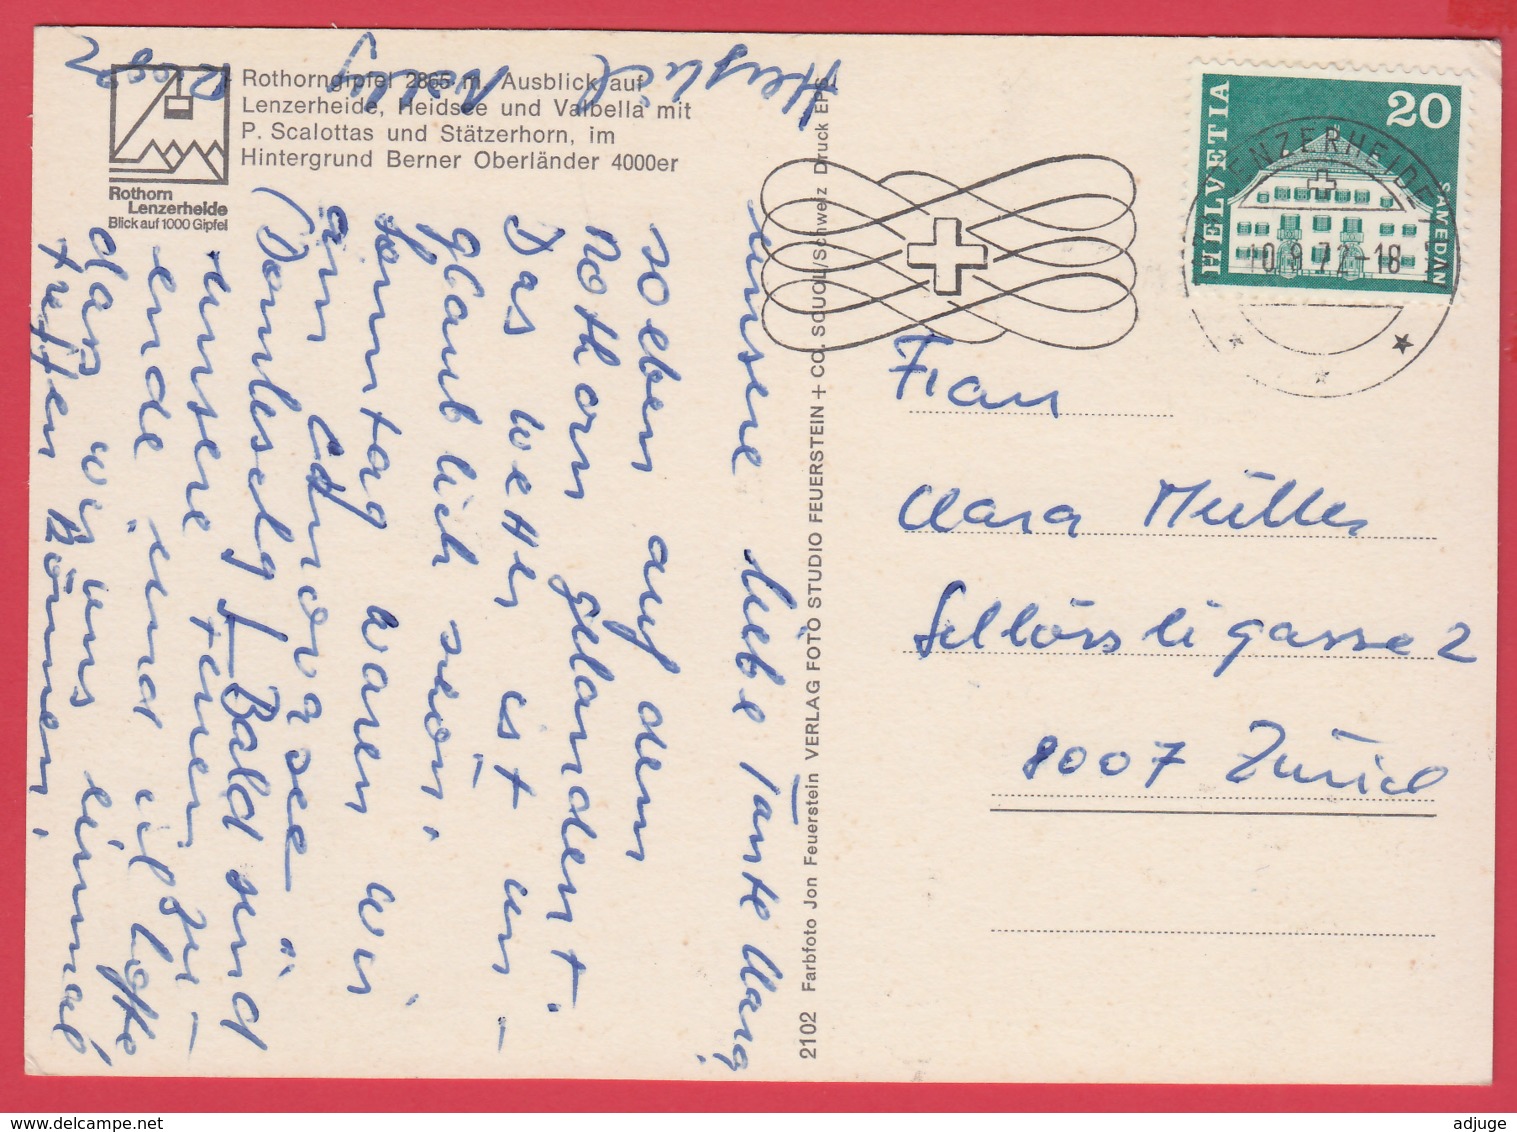 Rothorngipfel 2865 m, Ausblick auf
Lenzerheide, Heidsee und Valbella mit
P. Scalottas und Stätzerhorn, im
Hintergrund Berner Oberländer 4000er
Rothorn
Lenzerheide
Blick auf 1000 Gipfel
unsere liebe Tante Clara,
soeben auf dem
Rothorn gelandent.
Das Wetter ist un-
glaublich schön.
Sonntag waren wir
am
sind
unsere Ferien zu-
ende, und ich hoffe
dass wir uns einmal
treffen können.
Herzlich
2102 Farbfoto Jon Feuerstein VERLAG FOTO STUDIO FEUERSTEIN + CO. SCUOL/Schweiz Druck EPS
HELVETIA
20
SAMEDAN
LENZERHEIDE
10.9.72-18
Frau
Clara Müller
Schlössligasse 2
8007 Zürich
adjuge